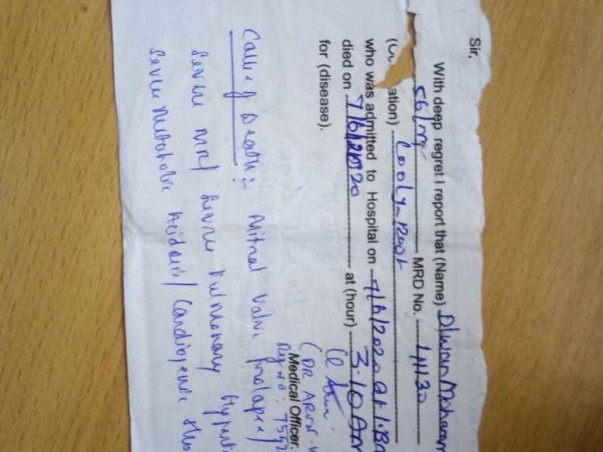 Sir,
With deep regret I report that (Name) Diwan Moharam
56/m MRD No. 14130
ation) Cooly
who was admitted to Hospital on 7/6/2020 at
died on 7/6/2020 at (hour) 3.10 Am
for (disease).
Medical Officer.
(DR ARUN
Reg no:
Cause of Death:- Mitral Valve Prolapse/
Severe MR/ Severe Pulmonary
Severe Metabolic Acidosis/ Cardiogenic